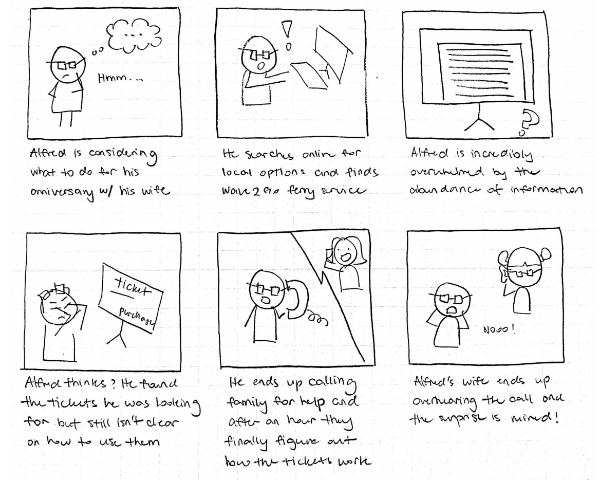 Hmm...
Alfred is considering
what to do for his
anniversary w/ his wife
He searches online for
local options and finds
wave2go ferry service
Alfred is incredibly
overwhelmed by the
abundance of information
ticket
purchase
Alfred thinks? He found
the tickets he was looking
for but still isn't clear
on how to use them
He ends up calling
family for help and
after an hour they
finally figure out
how the tickets work
Nooo!
Alfred's wife ends up
overhearing the call and
the surprise is ruined!